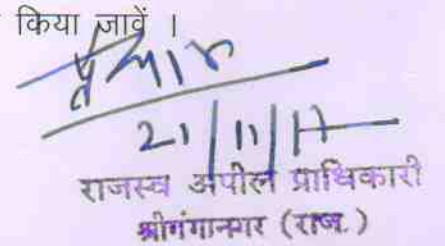 किया जावें ।
21/11/17
राजस्व अपील प्राधिकारी
श्रीगंगानगर (राज.)